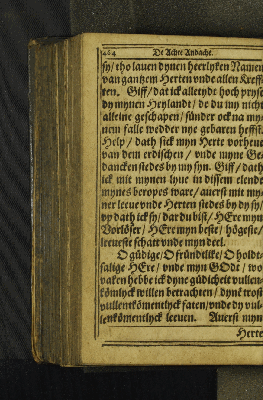 464 De Achte Andacht.
sy/ tho lauen dynen heerlyken Namen
van gantzem Herten vnde allen Kreff-
ten. Giff/ dat ick alletydt hoch pryse
dy mynen Heylandt/ de du my nicht
alleine geschapen/ sünder ock na my-
nem falle wedder nye gebaren heffst.
Help/ dath sick myn Herte vorheue
van dem erdischen/ vnde myne Ge-
dancken stedes by my syn. Giff/ dath
ick mit mynen lyue in dissem elende
mynes beropes ware/ auerst mit my-
ner leeue vnde Herten stedes by dy sy/
vp dath ick sy/ dar du bist/ HEre myn
Vorlöser/ HEre myn beste/ högeste/
leeueste schatt vnde myn deel.
O güdige/ O fründtlike/ O holdt-
salige HEre/ vnde myn GOdt/ wo
vaken hebbe ick dyne güdicheit vullen-
kömlyck willen betrachten/ dyne trost
vullenkömentlyck faten/ vnde dy vul-
lenkömentlyck leeuen. Auerst myn
Herte